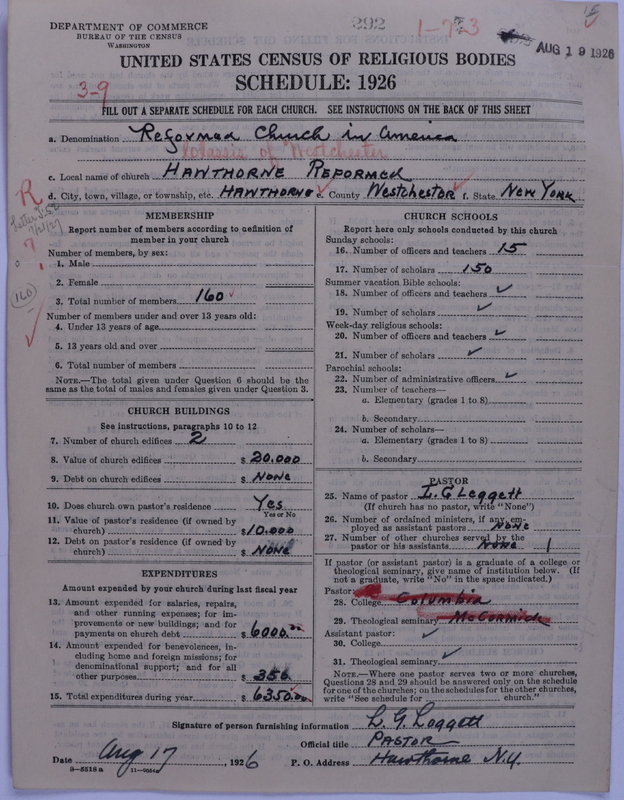 DEPARTMENT OF COMMERCE
BUREAU OF THE CENSUS
WASHINGTON
292
1-7-3
AUG 19 1926
UNITED STATES CENSUS OF RELIGIOUS BODIES
SCHEDULE: 1926
3-9
FILL OUT A SEPARATE SCHEDULE FOR EACH CHURCH. SEE INSTRUCTIONS ON THE BACK OF THIS SHEET
a. Denomination Reformed Church in America
Classis of Westchester
c. Local name of church HAWTHORNE REFORMED
d. City, town, village, or township, etc. HAWTHORNE e. County Westchester f. State NEW YORK
R
7/21/27
160
MEMBERSHIP
Report number of members according to definition of member in your church
Number of members, by sex:
1. Male
2. Female
3. Total number of members 160
Number of members under and over 13 years old:
4. Under 13 years of age
5. 13 years old and over
6. Total number of members
NOTE.—The total given under Question 6 should be
same as the total of males and females given under Question 3.
CHURCH BUILDINGS
See instructions, paragraphs 10 to 12
7. Number of church edifices 2
8. Value of church edifices $ 20.000
9. Debt on church edifices $ NONE
10. Does church own pastor's residence Yes
Yes or No
11. Value of pastor's residence (if owned by
church) $ 10.000
12. Debt on pastor's residence (if owned by
church) $ NONE
EXPENDITURES
Amount expended by your church during last fiscal year
13. Amount expended for salaries, repairs,
and other running expenses; for im-
provements or new buildings; and for
payments on church debt $ 6000.00
14. Amount expended for benevolences, in-
cluding home and foreign missions; for
denominational support; and for all
other purposes $ 350.
15. Total expenditures during year $ 6350.00
CHURCH SCHOOLS
Report here only schools conducted by this church
Sunday schools:
16. Number of officers and teachers 15
17. Number of scholars 150
Summer vacation Bible schools:
18. Number of officers and teachers
19. Number of scholars
Week-day religious schools:
20. Number of officers and teachers
21. Number of scholars
Parochial schools:
22. Number of administrative officers
23. Number of teachers—
a. Elementary (grades 1 to 8)
b. Secondary
24. Number of scholars—
a. Elementary (grades 1 to 8)
b. Secondary
PASTOR
25. Name of pastor L. G Leggett
(If church has no pastor, write "None")
26. Number of ordained ministers, if any, em-
ployed as assistant pastors NONE
27. Number of other churches served by the
pastor or his assistants NONE 1
If pastor (or assistant pastor) is a graduate of a college or
theological seminary, give name of institution below. (If
not a graduate, write "No" in the space indicated.)
Pastor:
28. College Columbia
29. Theological seminary McCormick
Assistant pastor:
30. College
31. Theological seminary
NOTE.—Where one pastor serves two or more churches,
Questions 28 and 29 should be answered only on the schedule
for one of the churches; on the schedules for the other churches,
write "See schedule for church."
Signature of person furnishing information L. G. Leggett
Official title PASTOR
Date Aug 17, 1926 P. O. Address Hawthorne N.Y.